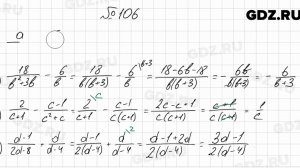 GDZ.RU
№106
a
18/(b²+3b) - 6/b = 18/(b(b+3)) - 6/b ^(b+3) = (18-6b-18)/(b(b+3)) = - 6b/(b(b+3)) = - 6/(b+3)
2/(c+1) - (c-1)/(c²+c) = 2/(c+1) ^c - (c-1)/(c(c+1)) = (2c-c+1)/(c(c+1)) = (c+1)/(c(c+1)) = 1/c
(d-1)/(2d-8) + d/(d-4) = (d-1)/(2(d-4)) + d/(d-4) ^2 = (d-1+2d)/(2(d-4)) = (3d-1)/(2(d-4))